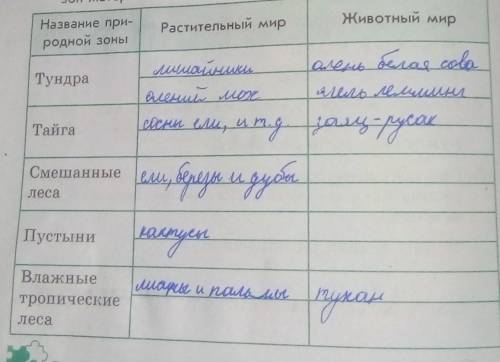 Название при- Растительный мир Животный мир
родной зоны
Тундра лишайники олень белая сова
олений мох ягель лемминг
Тайга сосны ели, и т.д. заяц-русак
Смешанные ели, березы и дубы
леса
Пустыни кактусы
Влажные лианы и пальмы тукан
тропические
леса